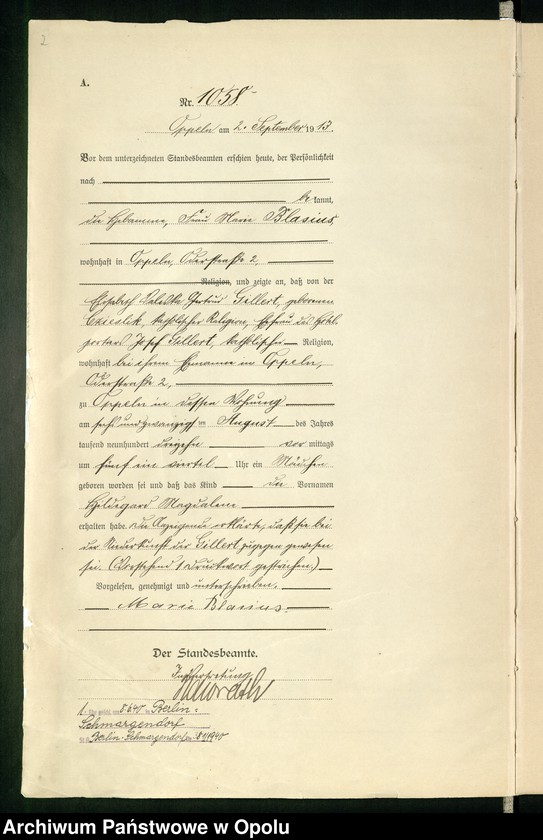 2
A.
Nr. 1058
Oppeln am 2. September 1913.
Vor dem unterzeichneten Standesbeamten erschien heute, der Persönlichkeit
nach
be kannt,
die Hebamme, Frau Marie Blasius,
wohnhaft in Oppeln, Oderstraße 2,
Religion, und zeigte an, daß von der
Elisabeth Gertrud Gellert, geborenen
katholischer Religion, Ehefrau des Hotel-
portiers Josef Gellert, katholischer Religion,
wohnhaft bei ihrem Ehemanne in Oppeln,
Oderstraße 2,
zu Oppeln in dessen Wohnung
am sechsundzwanzigsten August des Jahres
tausend neunhundert dreizehn vor mittags
um fünf ein viertel Uhr ein Mädchen
geboren worden sei und daß das Kind die Vornamen
Hildegard Magdalena
erhalten habe. Die Anzeigende erklärte, daß sie bei
der Niederkunft der Gellert zugegen gewesen
sei. (Vorstehend 1 Druckwort gestrichen.)
Vorgelesen, genehmigt und unterschrieben.
Marie Blasius.
Der Standesbeamte.
In Vertretung
1. 1940 in Berlin-
Schmargendorf
Berlin-Schmargendorf 1940
Archiwum Państwowe w Opolu